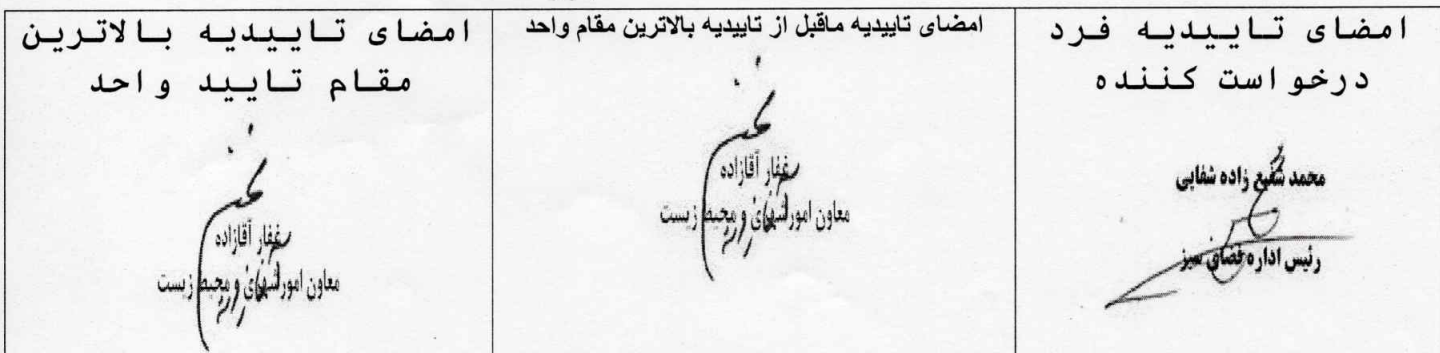 امضای تاییدیه فرد
درخواست کننده
محمد شفیع زاده شفایی
رئیس اداره فضای سبز
امضای تاییدیه ماقبل از تاییدیه بالاترین مقام واحد
غفار آقازاده
معاون امور شهری و محیط زیست
امضای تاییدیه بالاترین
مقام تایید واحد
غفار آقازاده
معاون امور شهری و محیط زیست